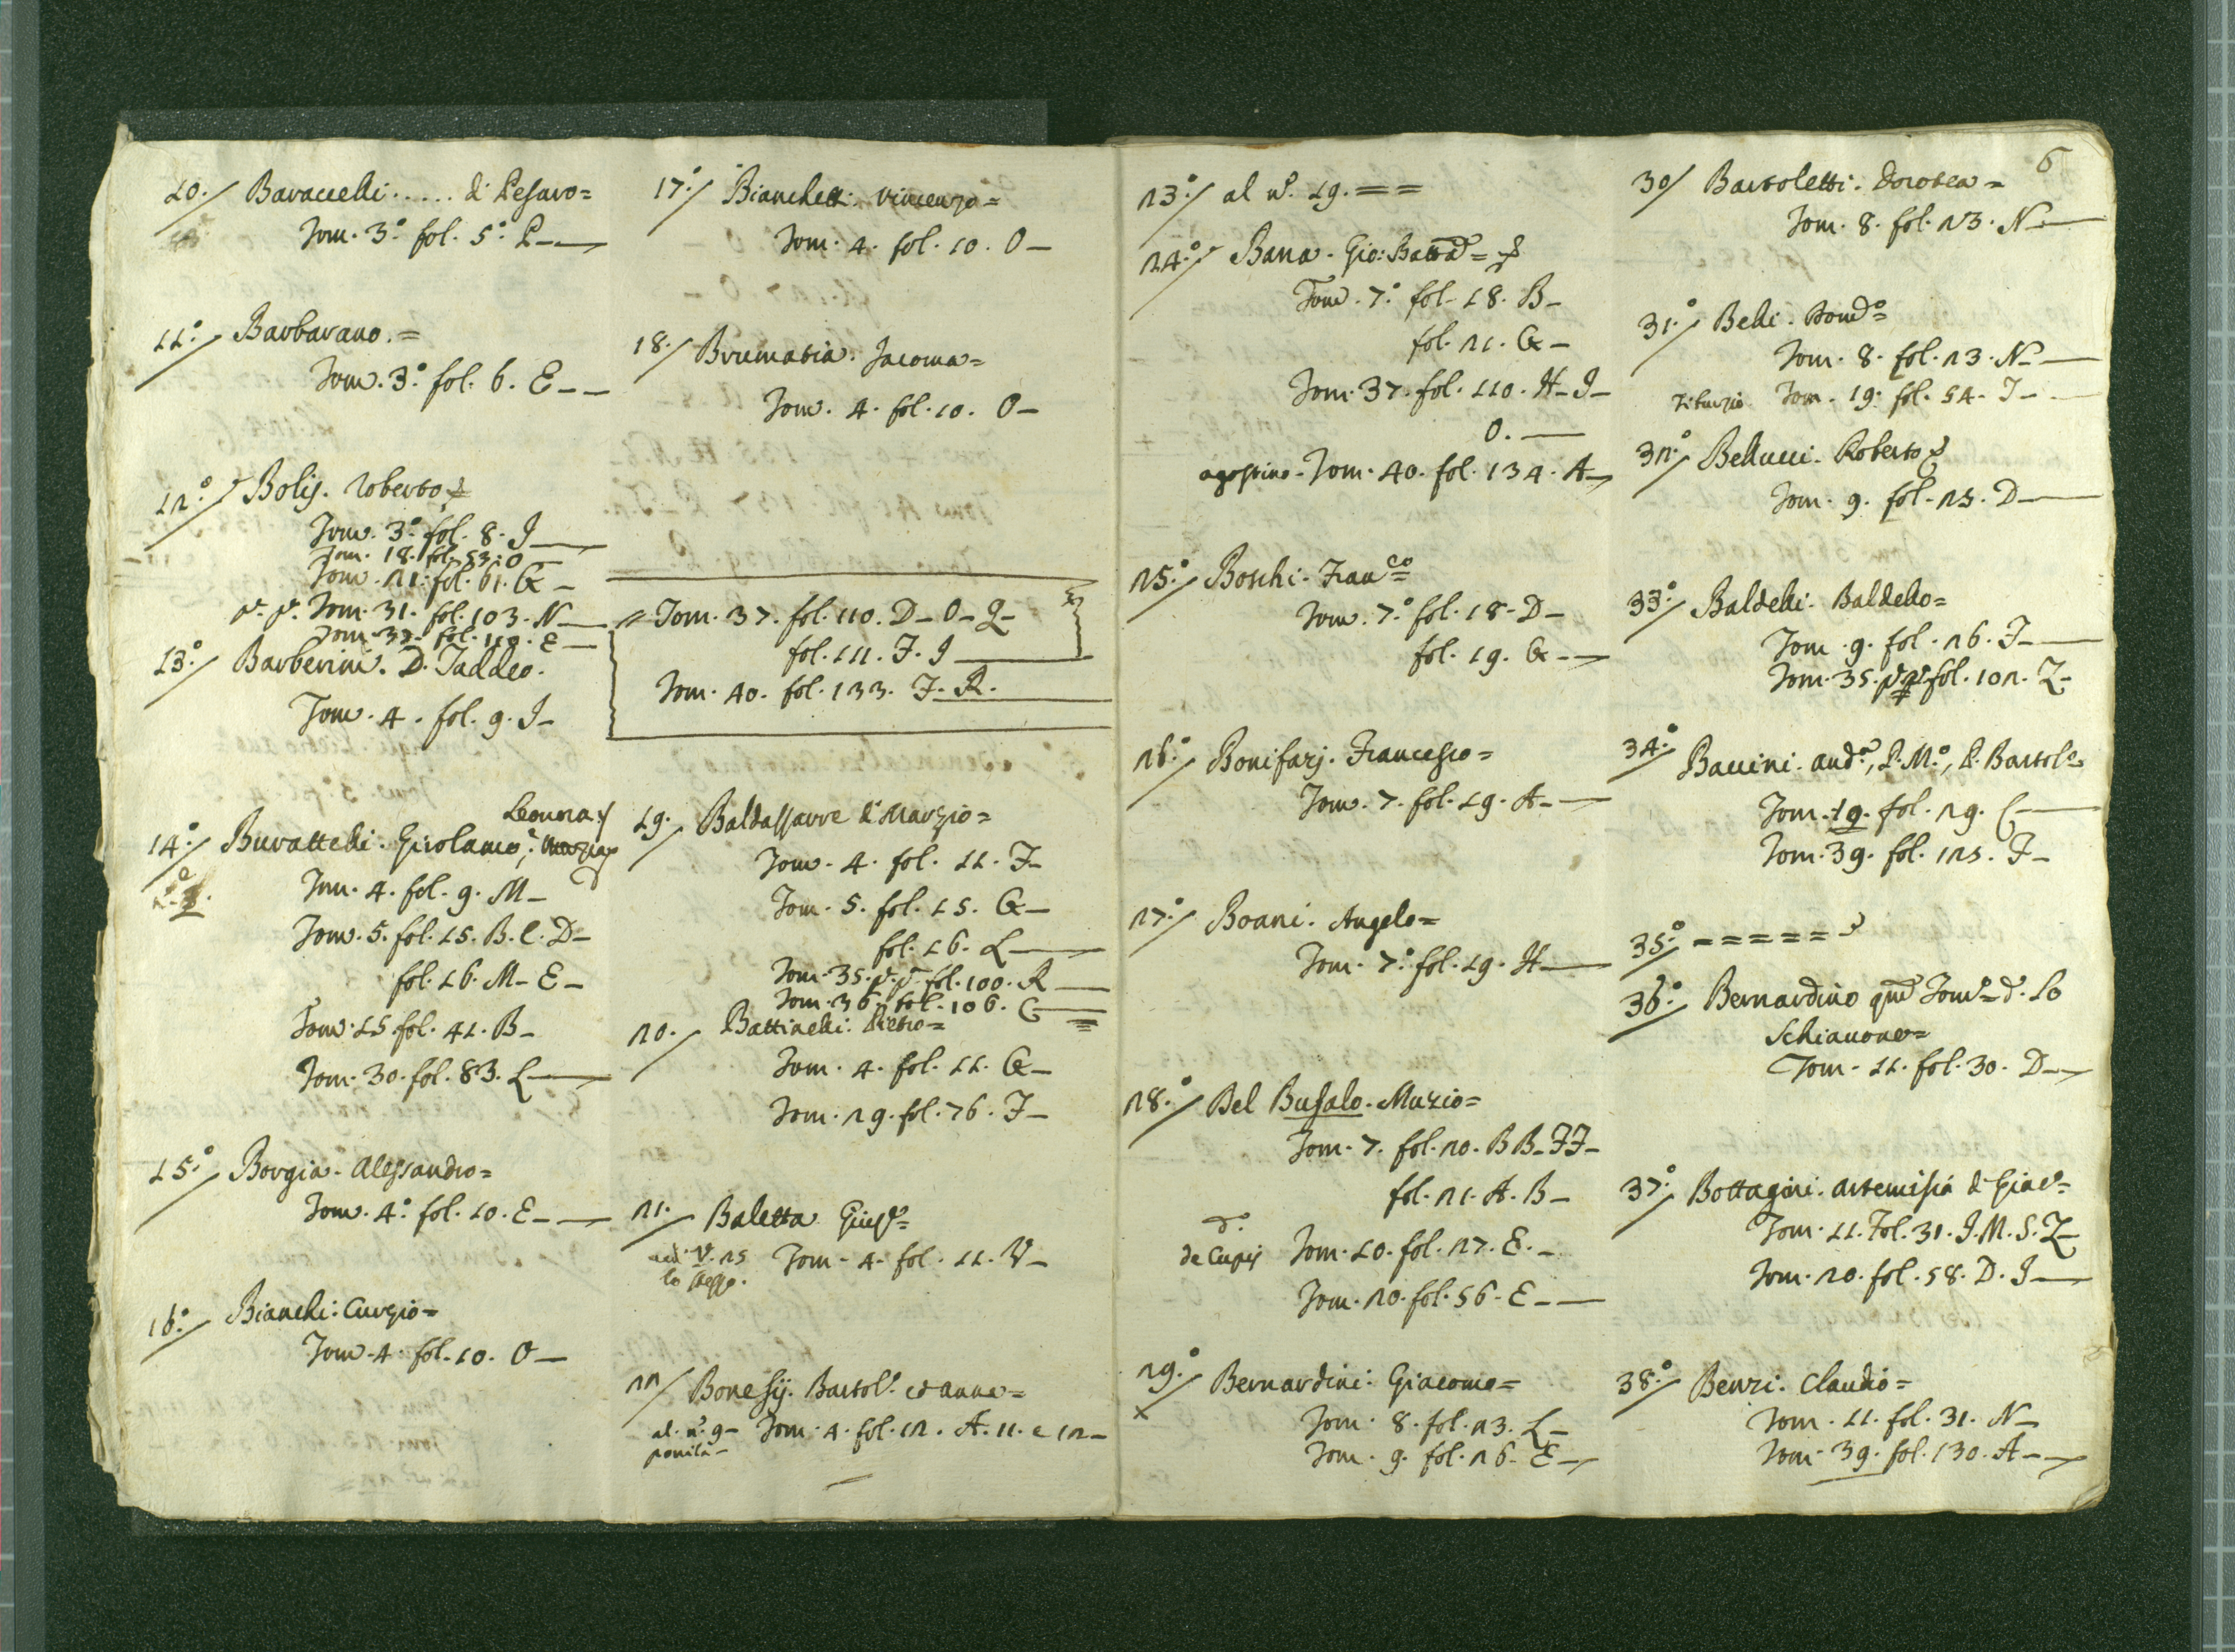 10./ Baraccelli ..... di Pesaro=
Tom. 3.° fol. 5.° P—
11.°/ Barbarano.=
Tom. 3.° fol. 6. E——
12.°/ Bolis. Roberto
Tom. 3.° fol. 8. I—
Tom. 18. fol. 53. O—
Tom. 21. fol. 61. G—
p. p. Tom. 31. fol. 103. N—
Tom. 37. fol. 110. E—
13.°/ Barberini. D. Taddeo.
Tom. 4. fol. 9. I—
Leonora
14.°/ Burattelli. Girolamo,
Tom. 4. fol. 9. M—
Tom. 5. fol. 15. B. C. D—
fol. 16. M— E—
Tom. 15. fol. 41. B—
Tom. 30. fol. 83. L—
15.°/ Borgia. Alessandro=
Tom. 4.° fol. 10. E—
16.°/ Bianchi. Curzio=
Tom. 4. fol. 10. O—
17.°/ Bianchetti. Vincenzo=
Tom. 4. fol. 10. O—
18./ Brumatia. Jacoma=
Tom. 4. fol. 10. O—
Tom. 37. fol. 110. D— O— Q—
fol. 111. F. I—
Tom. 40. fol. 133. F. R.
19./ Baldassarre di Marzio=
Tom. 4. fol. 11. F—
Tom. 5. fol. 15. G—
fol. 16. L—
Tom. 35. p. p. fol. 100. R—
Tom. 36. fol. 106. C—
20./ Battinelli. Pietro=
Tom. 4. fol. 11. G—
Tom. 29. fol. 76. F—
21./ Baletta. Gius.e=
25 Tom. 4. fol. 11. V—
22/ Bonesij. Bartol.° et Anna=
al. n.° 9— Tom. 4. fol. 12. A. 11. e 12—
6
23.°/ al n.° 19.==
24.°/ Bana. Gio: Batta=
Tom. 7.° fol. 18. B—
fol. 21. G—
Tom. 37. fol. 110. H— I—
O.—
agostino— Tom. 40. fol. 134. A—
25.°/ Boschi. Fran.co=
Tom. 7.° fol. 18— D—
fol. 19. G—
26.°/ Bonifazj. Francesco=
Tom. 7. fol. 19. A—
27.°/ Boani. Angelo=
Tom. 7.° fol. 19. H—
28.°/ Del Bufalo. Muzio=
Tom. 7. fol. 20. BB— FF—
fol. 21. A. B—
d.°
de Cupis Tom. 10. fol. 27. E.—
Tom. 20. fol. 56. E——
29.°/ Bernardini. Giacomo=
x Tom. 8. fol. 23. L—
Tom. 9. fol. 26. E—
30/ Bartoletti. Dorotea=
Tom. 8. fol. 23. N—
31.°/ Belli. Dom.co=
Tom. 8. fol. 23. N—
Tiburzio Tom. 19. fol. 54. I—
32.°/ Bellucci. Roberto
Tom. 9. fol. 25. D—
33.°/ Baldelli. Baldello=
Tom. 9. fol. 26. F—
Tom. 35. fol. 102. Z—
34.°/ Baccini. And.a, P. M.°, P. Bartol.o
Tom. 10. fol. 29. C—
Tom. 39. fol. 125. F—
35.°/ ======
36.°/ Bernardino qm̃ Tom.o= d.° Lo
Schiavone=
Tom. 11. fol. 30. D—
37.°/ Bottagini. Artemisia di Giac.o=
Tom. 11. fol. 31. I. M. S. Z—
Tom. 20. fol. 58. D. I—
38.°/ Benzi. Claudio=
Tom. 11. fol. 31. N—
Tom. 39. fol. 130. A—